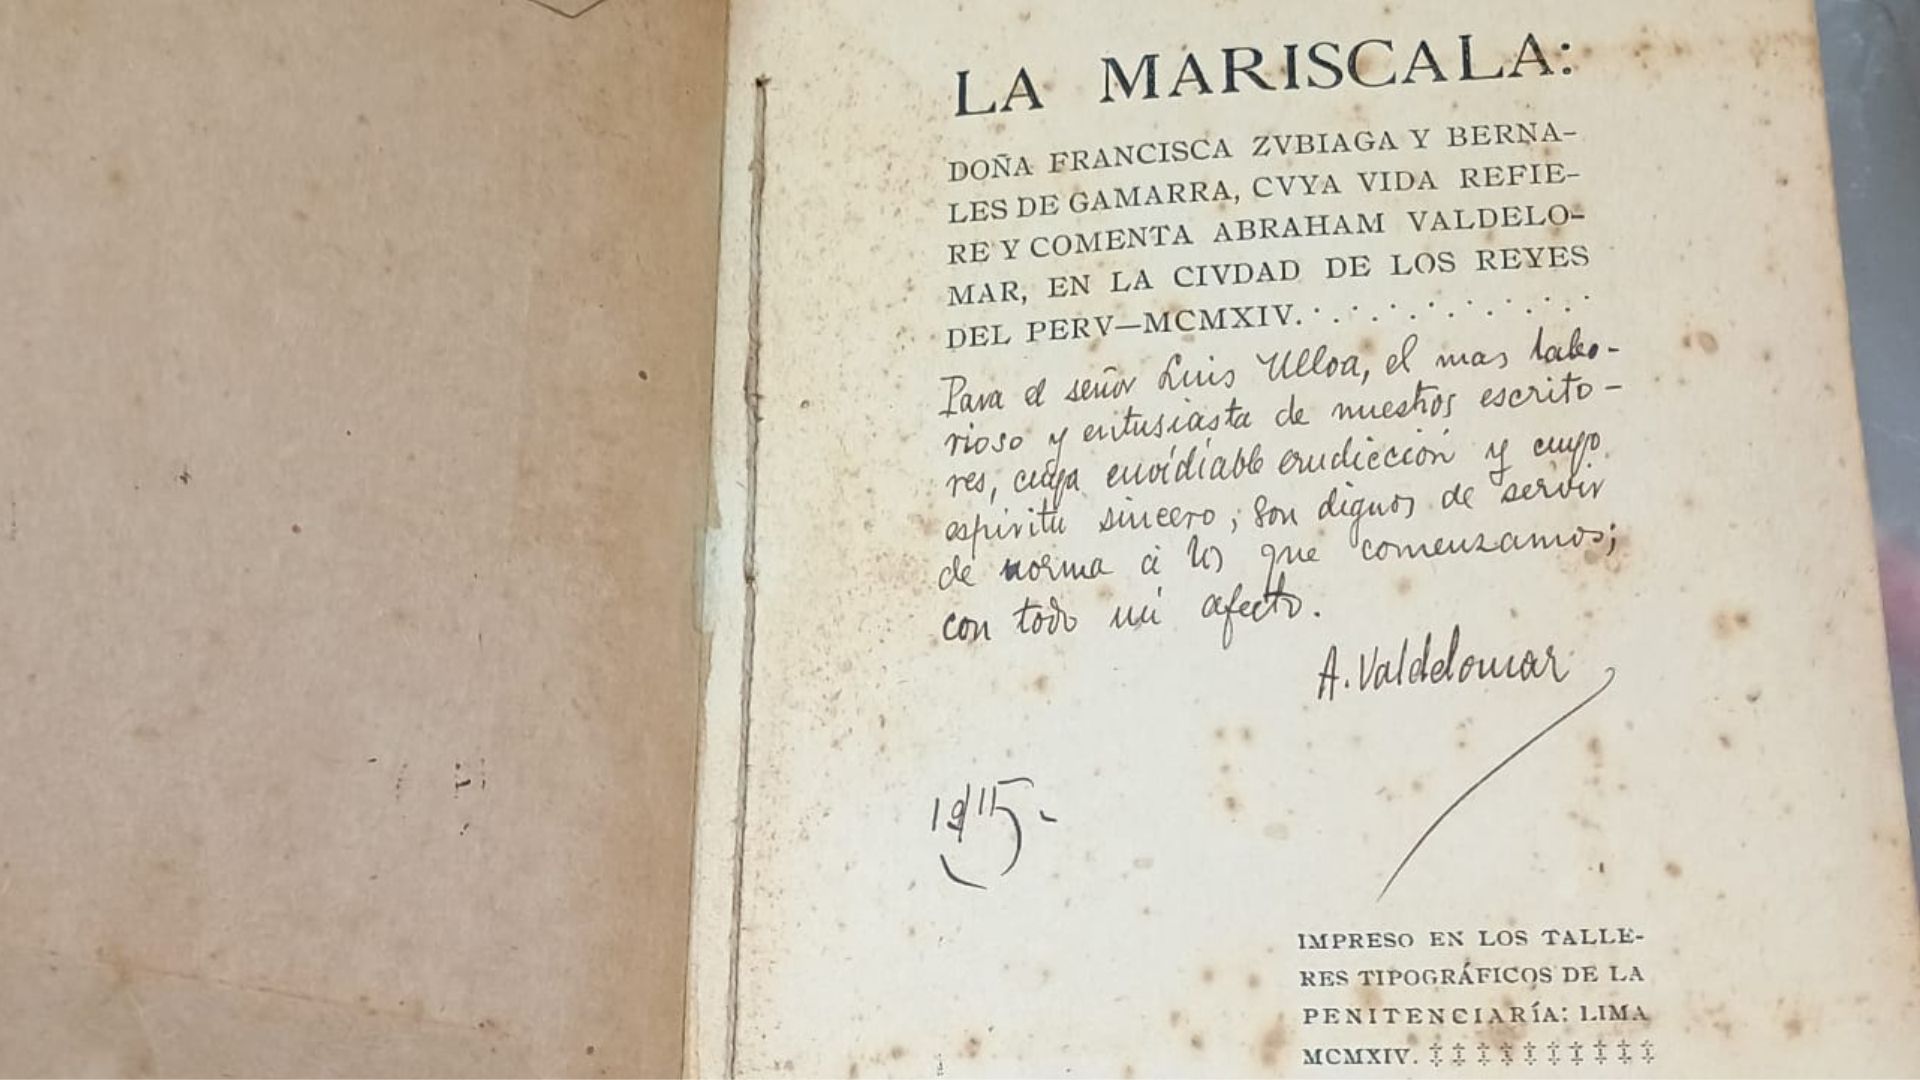 LA MARISCALA:
DOÑA FRANCISCA ZVBIAGA Y BERNA-
LES DE GAMARRA, CVYA VIDA REFIE-
RE Y COMENTA ABRAHAM VALDELO-
MAR, EN LA CIVDAD DE LOS REYES
DEL PERV—MCMXIV. . . . . . . . . . . .
Para el señor Luis Ulloa, el mas labo-
rioso y entusiasta de nuestros escrito-
res, cuya envidiable erudicción y cuyo
espiritu sincero, son dignos de servir
de norma á los que comenzamos;
con todo mi afecto.
A. Valdelomar
1915.
IMPRESO EN LOS TALLE-
RES TIPOGRÁFICOS DE LA
PENITENCIARÍA: LIMA
MCMXIV. ‡ ‡ ‡ ‡ ‡ ‡ ‡ ‡ ‡ ‡